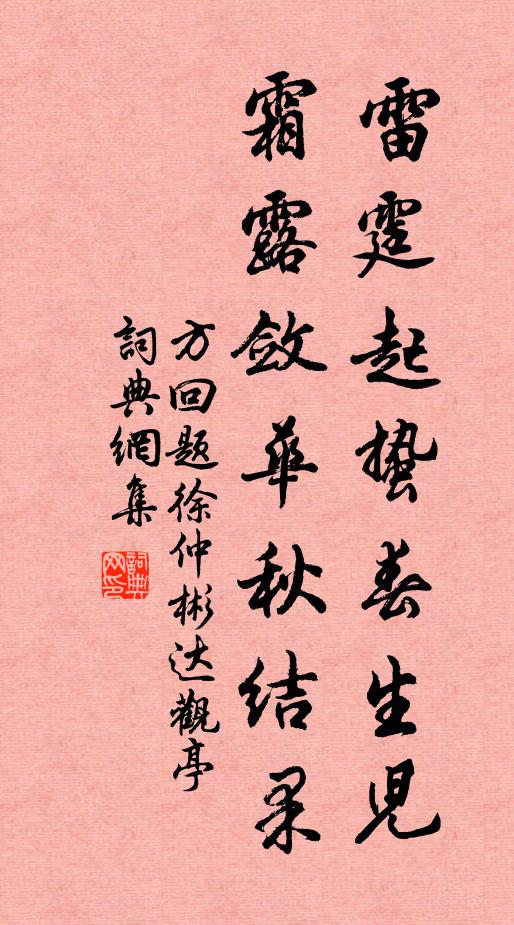 雷霆起蛰春生児
霜露斂華秋结果
方回题徐仲彬达觀亭
詞典網集
詞典网印